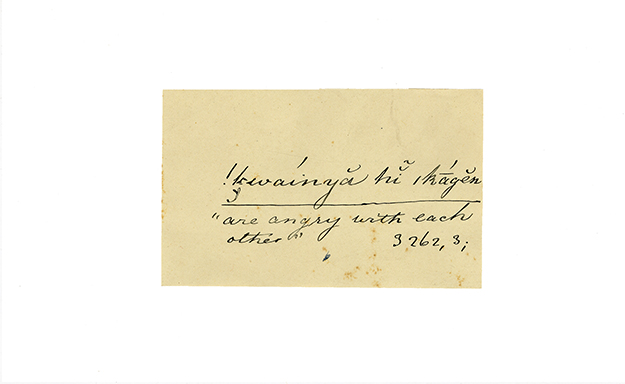 !k̮waínyă hĭ̃ ıkágĕn
"are angry with each
other" 3262, 3;